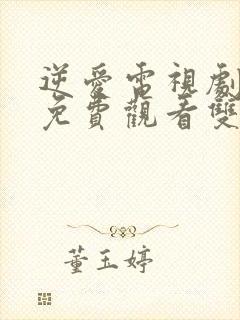 逆愛電視劇
免費觀看雙
董玉婷